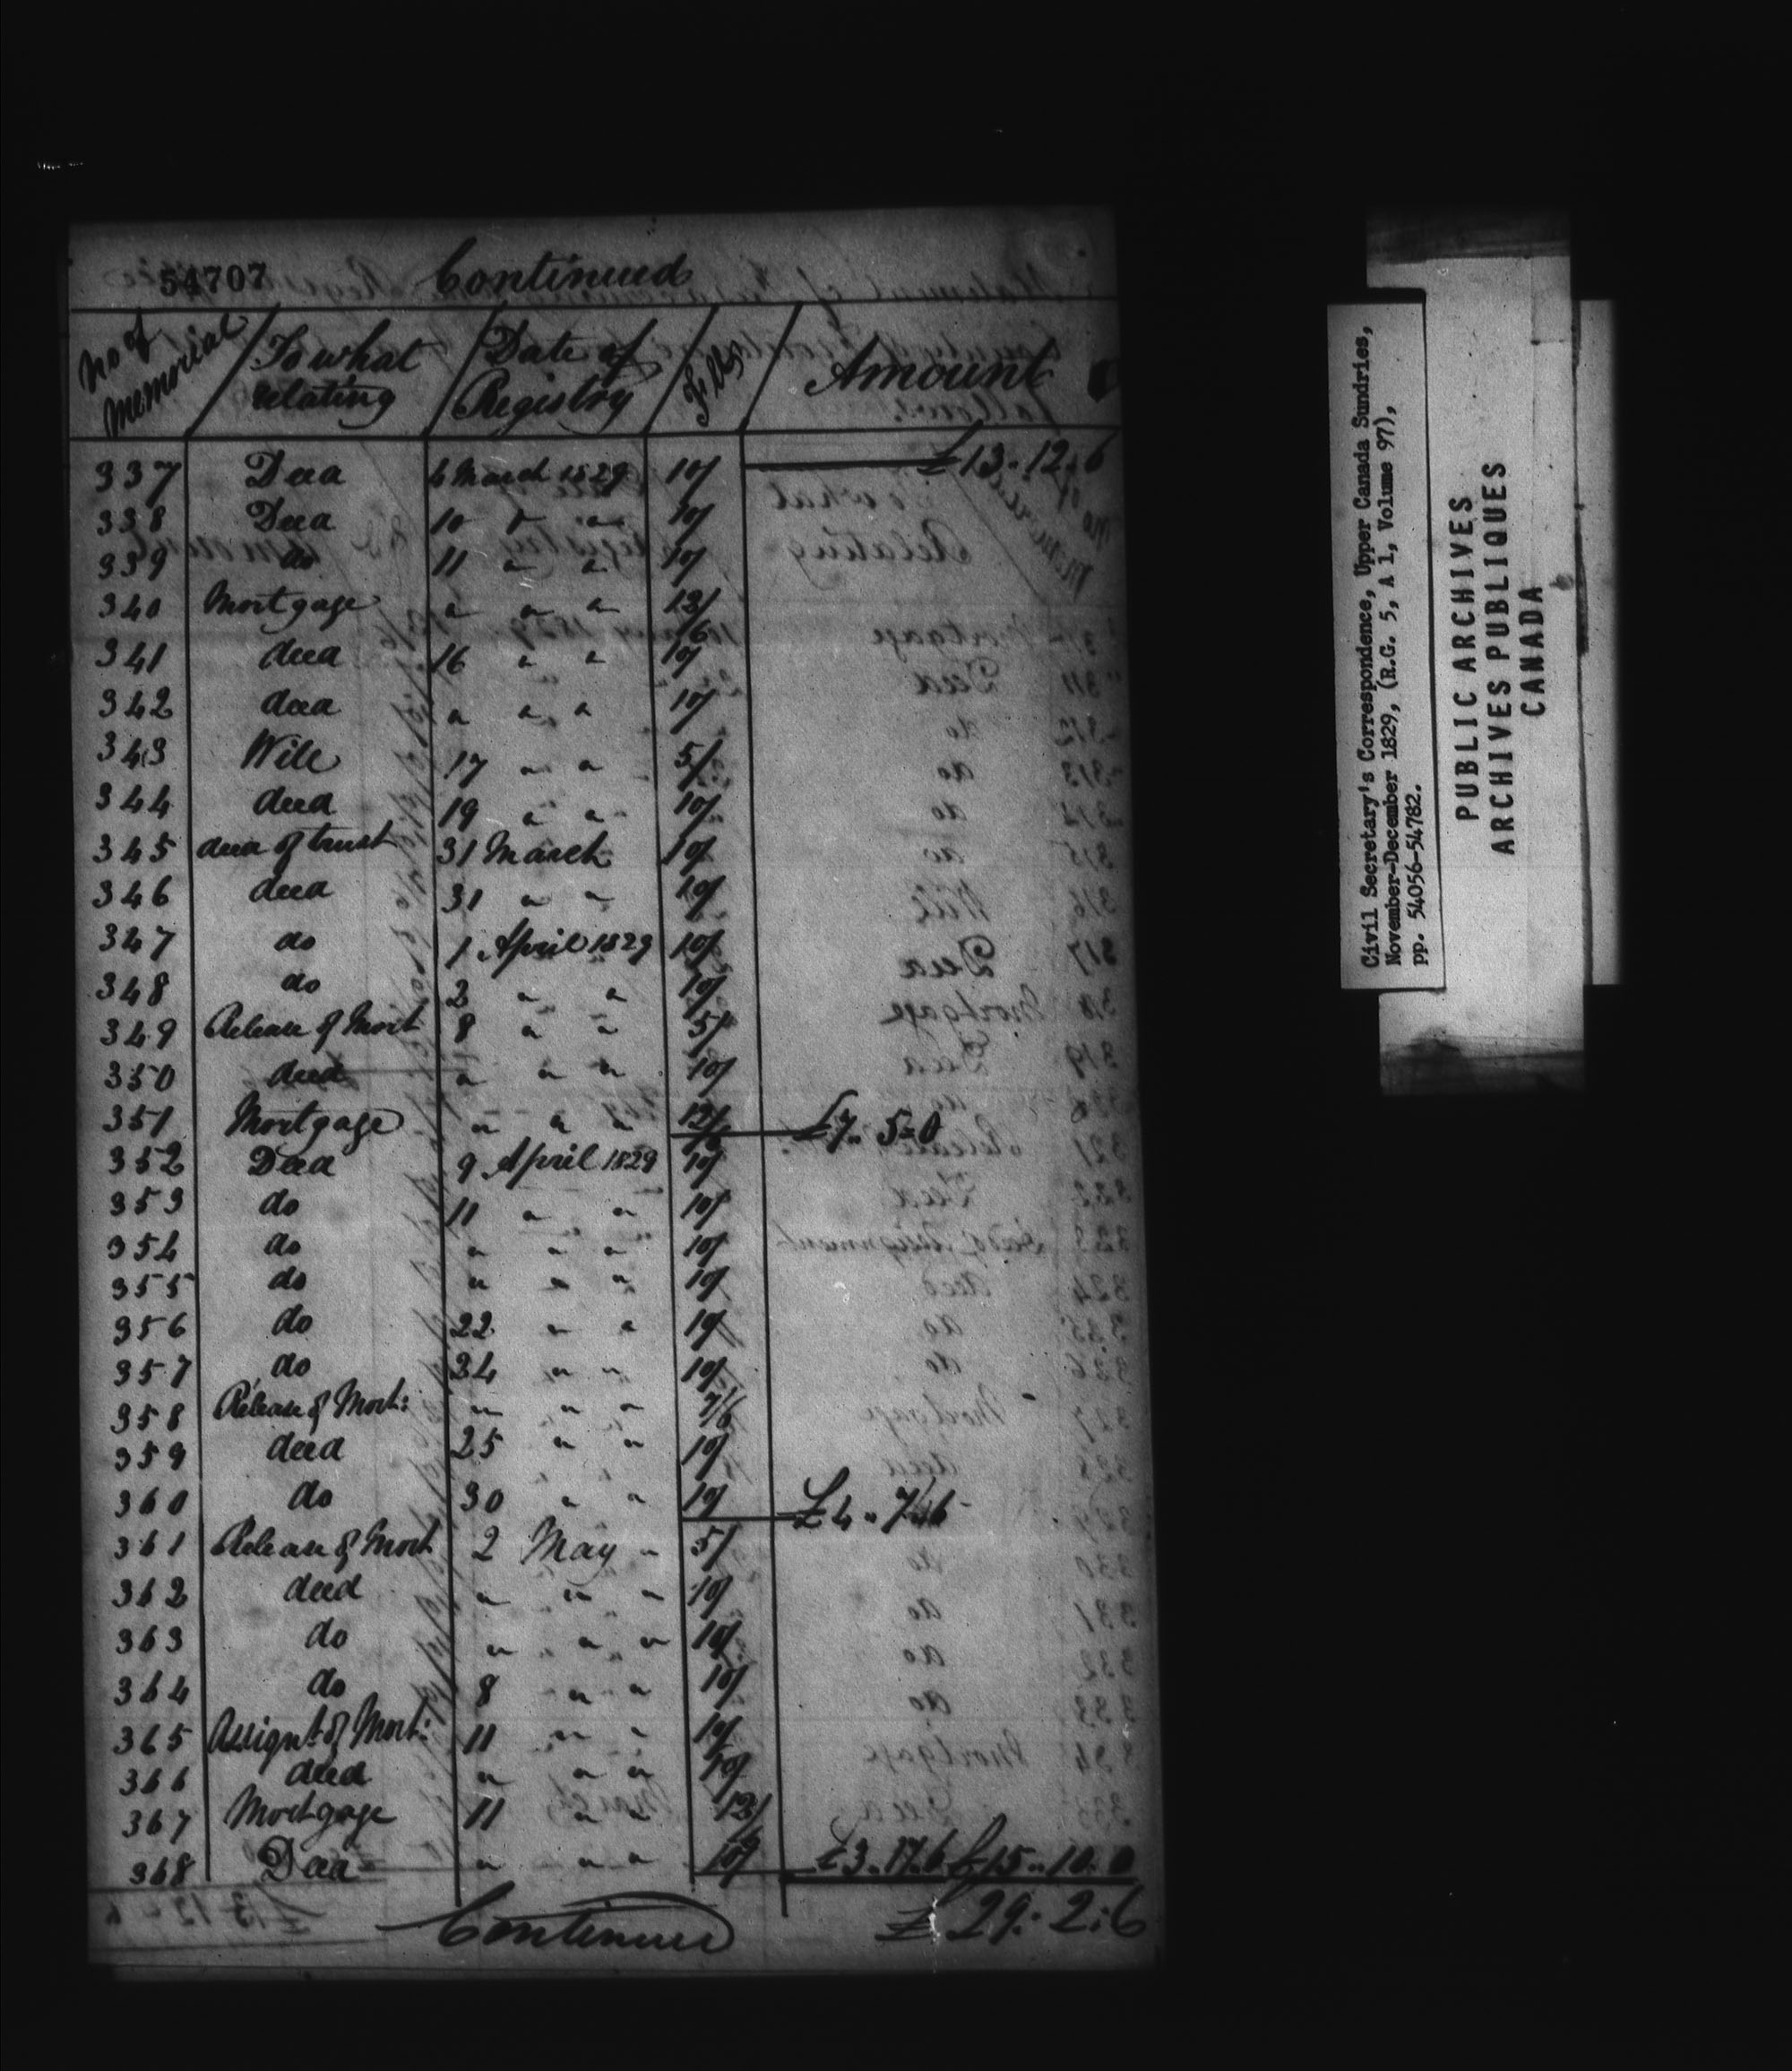 54707 Continued
No of Memorial To what relating Date of Registry Amount
£13.12.6
337 Deed 6 March 1829 10/
338 Deed 10 " " 10/
339 do 11 " " 10/
340 Mortgage " " " 12/6
341 deed 16 " " 10/
342 deed " " " 10/
343 Will 17 " " 5/
344 deed 19 " " 10/
345 deed of trust 31 March 10/
346 deed 31 " " 10/
347 do 1 April 1829 10/
348 do 2 " " 10/
349 Release of Mort 8 " " 5/
350 deed " " " 10/
351 Mortgage " " " 12/6 £7.. 5=0
352 Deed 9 April 1829 10/
353 do 11 " " 10/
354 do " " " 10/
355 do " " " 10/
356 do 22 " " 10/
357 do 24 " " 10/
358 Release of Mort: " " " 7/6
359 deed 25 " " 10/
360 do 30 " " 10/ £4..7..6
361 Release of Mort 2 May " 5/
362 deed " " " 10/
363 do " " " 10/
364 do 8 " " 10/
365 Assignt of Mort: 11 " " 10/
366 deed " " " 10/
367 Mortgage 11 " " 12/6
368 Deed " " " 10/ £3.17.6 £15..10.0
Continued £29.2.6
Civil Secretary's Correspondence, Upper Canada Sundries,
November-December 1829, (R.G. 5, A 1, Volume 97),
pp. 54056-54782.
PUBLIC ARCHIVES
ARCHIVES PUBLIQUES
CANADA